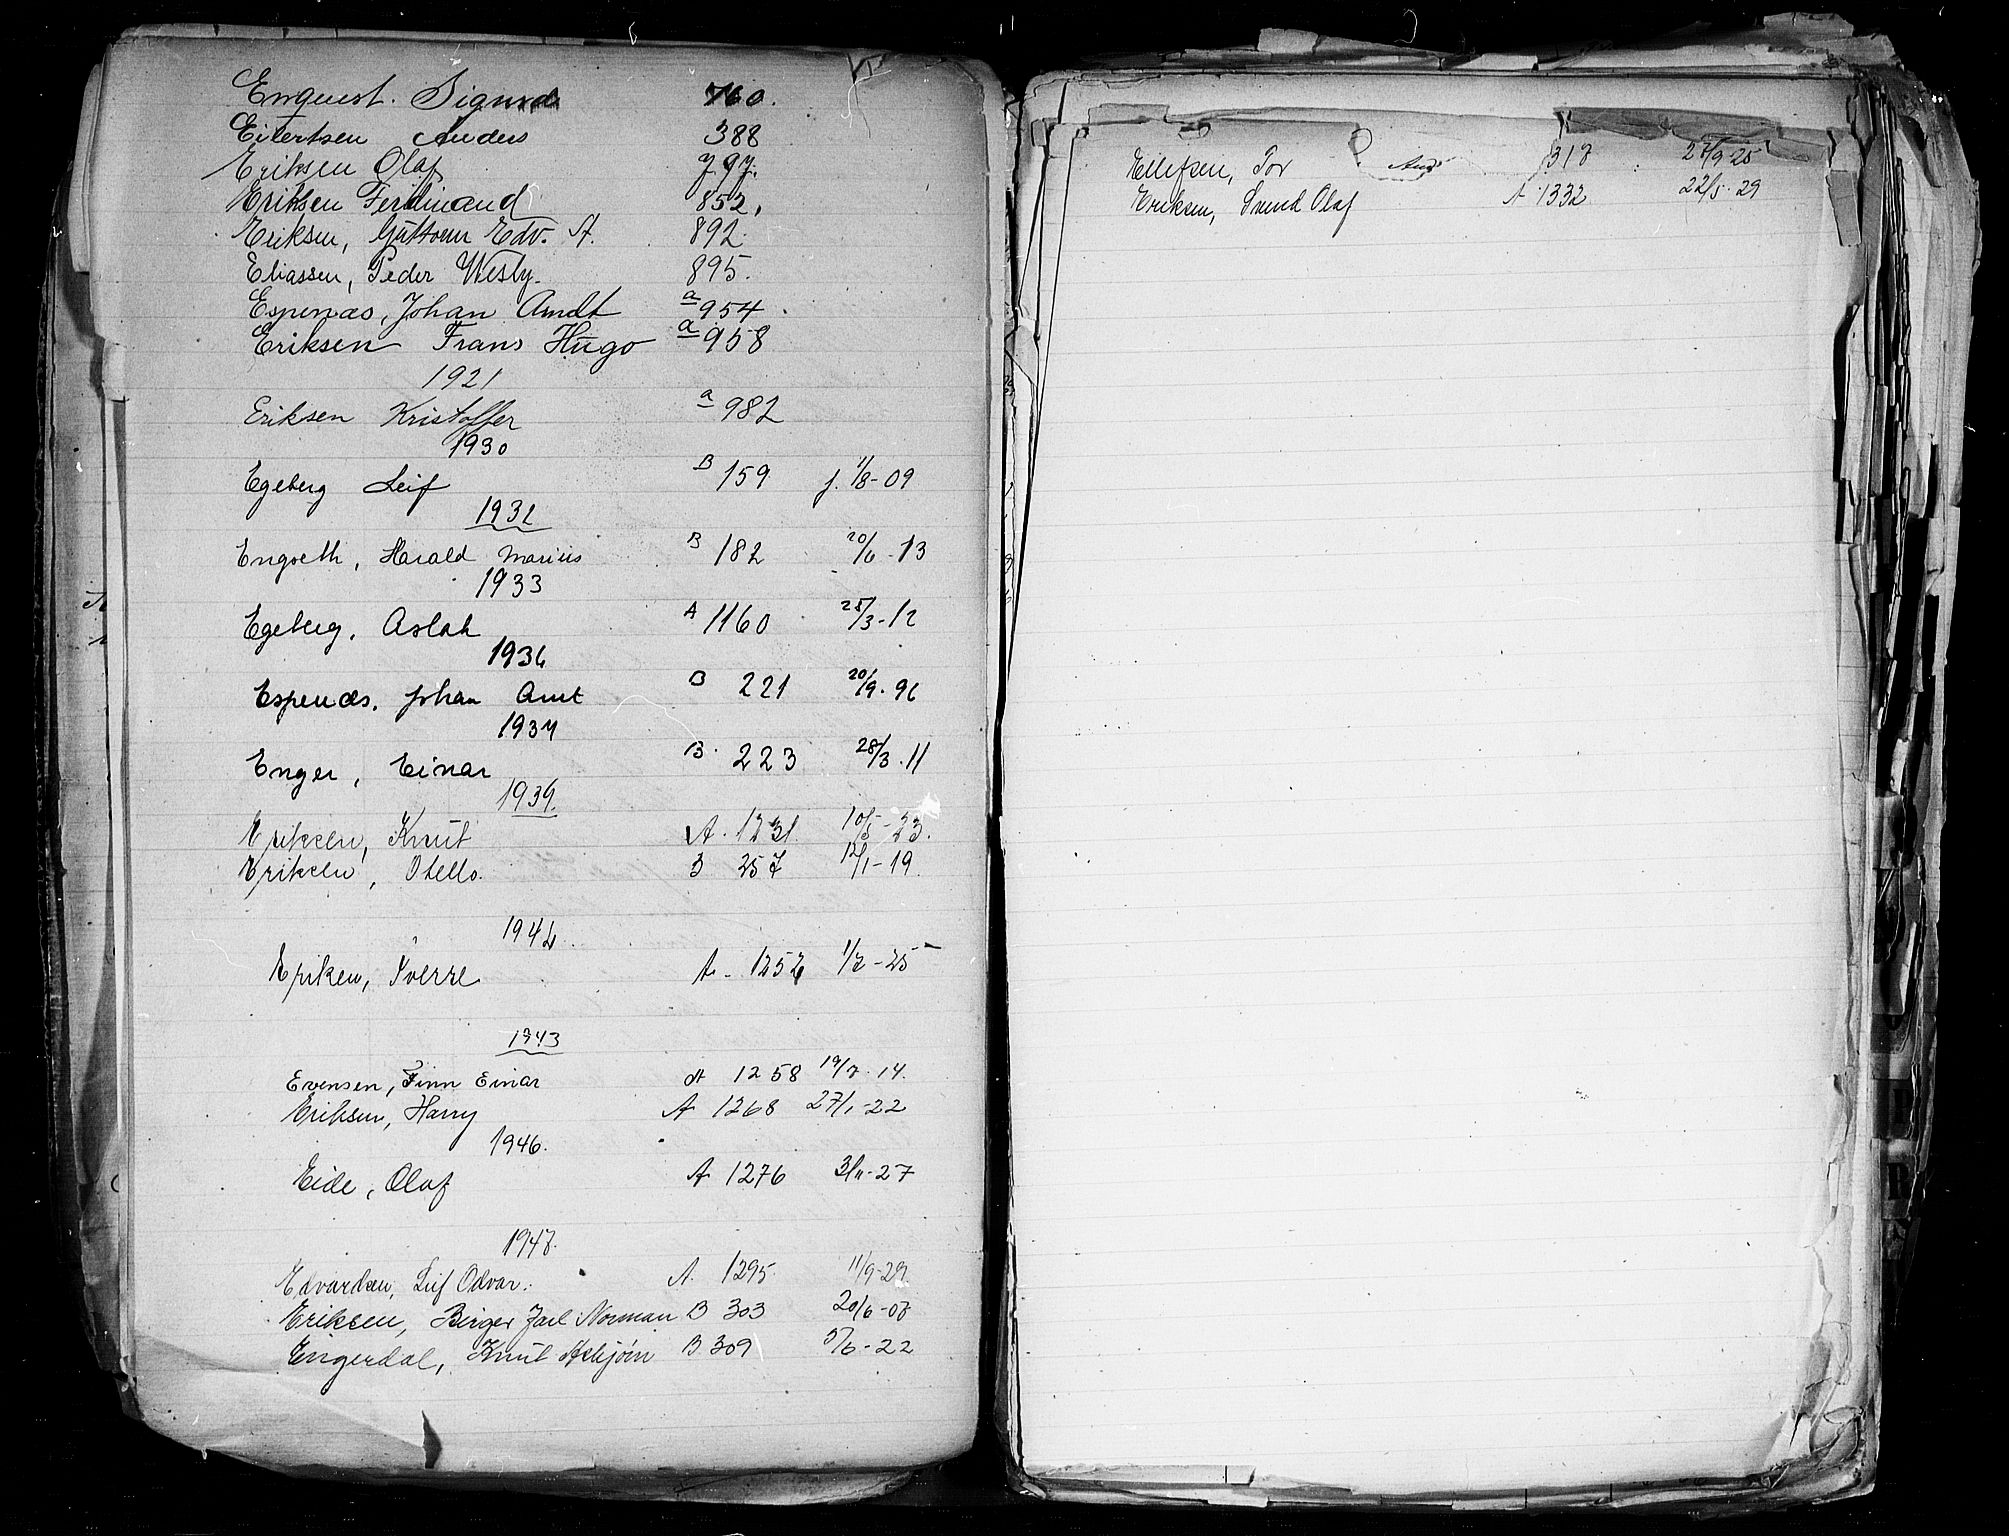 Enquest. Sigurd 760.
Eilertsen Anders 388
Eriksen Olaf 797.
Eriksen Ferdinand 852.
Eriksen, Guttorm Edv. A. 892.
Eliassen, Peder Wesly. 895.
Espenæs, Johan Arndt a 954
Eriksen Frans Hugo a 958
1921
Eriksen Kristoffer a 982
1930
Egeberg Leif B 159 f. 1/8-09
1932
Engseth, Harald Marius B 182 20/6-13
1933
Egeberg, Aslak A 1160 25/3-12
1936
Espenæs, Johan Arnt B 221 20/9.96
1937
Enger, Einar B. 223 28/3.11
1939.
Eriksen, Knut A. 1231 10/5-23.
Eriksen, Otello. B 257 12/1-19.
1942.
Eriken, Sverre A - 1252 1/2-25
1943
Evensen, Finn Einar A 1258 19/7.14.
Eriksen, Harry A 1268 27/1-22
1946.
Eide, Olaf A 1276 3/11-27
1947.
Edvardsen, Leif Odvar. A. 1295 11/9-29.
Eriksen, Birger Jarl Norman B 303 20/6-07
Engerdal, Knut Asbjørn B 309 5/6-22
Ellefsen, Tor 317 27/9-25
Eriksen, Svend Olaf A 1332 22/5-29